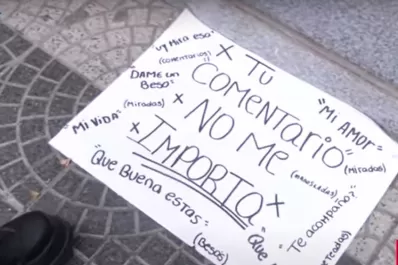 "uy Mira esa"
(comentarios)
DAME un
BESO"
(Miradas)
"MI VIDA"
x TÚ
COMENTARIO
x NO ME
x IMPORTA x
"MI AMOR"
(Miradas)
"Te acompaño?"
"QUE BUENA ESTAS"
(BESOS)
"QUE